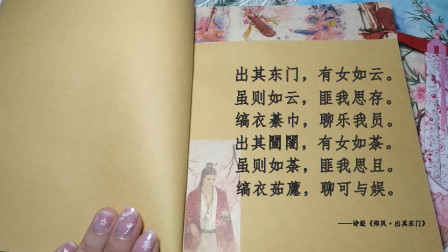 出其东门，有女如云。
虽则如云，匪我思存。
缟衣綦巾，聊乐我员。
出其闉闍，有女如荼。
虽则如荼，匪我思且。
缟衣茹藘，聊可与娱。
——诗经《郑风·出其东门》